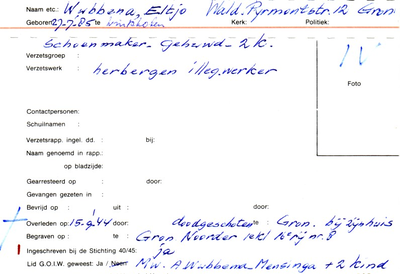 Naam etc.: Wubbena, Eltjo Wald. Pyrmontstr. 12 Gron
Geboren: 27-7-85 te Winschoten Kerk: Politiek:
Schoenmaker - Gehuwd - 2 k.
Verzetsgroep :
Verzetswerk : herbergen illeg. werker
Foto
Contactpersonen:
Schuilnamen :
Verzetsrapp. ingel. dd. : bij:
Naam genoemd in rapp.:
op bladzijde:
Gearresteerd op : door:
Gevangen gezeten in :
Bevrijd op : uit : door:
Overleden op: 15-9-44 door: doodgeschoten te Gron. bij zijn huis
Begraven op : te: Gron Noorder rij nr. 8
Ingeschreven bij de Stichting 40/45: ja
Lid G.O.I.W. geweest: Ja / Neen Mw. A. Wubbena-Mensinga + 2 kind